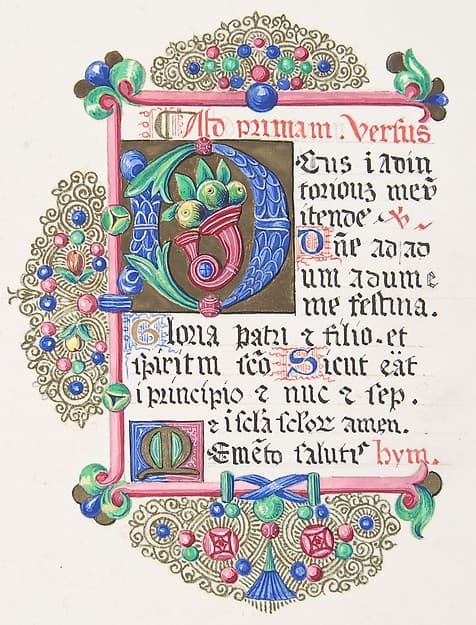 Ad primam. Versus
Deus i adiu
toriouz meū
itende. v.
Dñe ad ad
um adume
me festina.
Gloria patri ⁊ filio. et
spiritm scõ Sicut eāt
i principio ⁊ nuc ⁊ sep.
⁊ i scla sclor amen.
Memēto salutis hym.